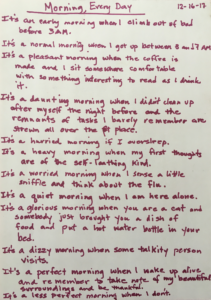 Morning, Every Day 12-16-17
It's an early morning when I climb out of bed
before 5AM.
It's a normal morning when I get up between 6 and 7 AM
It's a pleasant morning when the coffee is
made and I sit somewhere comfortable
with something interesting to read as I drink
it.
It's a daunting morning when I didn't clean up
after myself the night before and the
remnants of tasks I barely remember are
strewn all over the place.
It's a hurried morning if I oversleep.
It's a heavy morning when my first thoughts
are of the self-loathing kind.
It's a worried morning when I sense a little
sniffle and think about the flu.
It's a quiet morning when I am here alone.
It's a glorious morning when you are a cat and
somebody just brought you a dish of
food and put a hot water bottle in your
bed.
It's a dizzy morning when some talkity person
visits.
It's a perfect morning when I wake up alive
and remember to take note of my beautiful
surroundings and be thankful.
It's a less perfect morning when I don't.